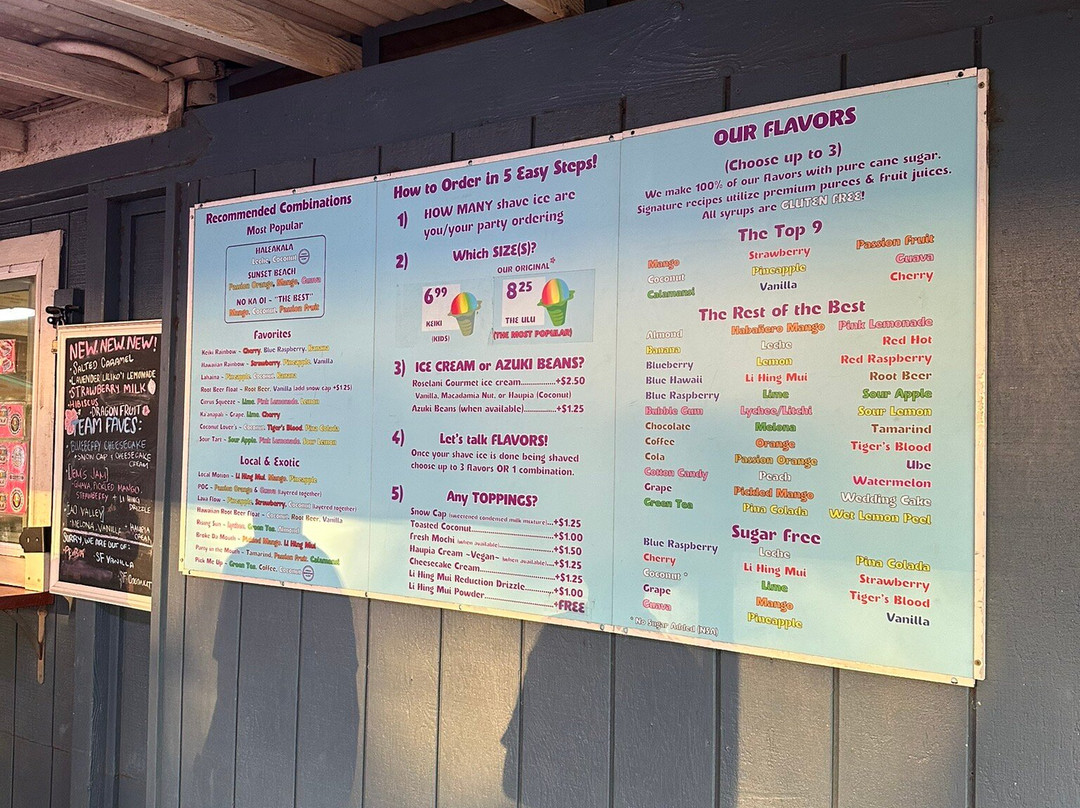 NEW. NEW. NEW!
• SALTED CARAMEL
• LAVENDER LILIKO'I LEMONADE
• STRAWBERRY MILK
• HIBISCUS
• DRAGON FRUIT
TEAM FAVES:
• BLUEBERRY CHEESECAKE
+ SNOW CAP + CHEESECAKE CREAM
- GUAVA, PICKLED MANGO, STRAWBERRY + LI HING DRIZZLE
[IAO VALLEY]
- MELONA, VANILLA + HAUPIA CREAM
SORRY, WE ARE OUT OF:
SF VANILLA
SF COCONUT
Recommended Combinations
Most Popular
HALEAKALA
Leche, Coconut
SUNSET BEACH
Passion Orange, Mango, Guava
NO KA OI ~ "THE BEST"
Mango, Coconut, Passion Fruit
Favorites
Keiki Rainbow ~ Cherry, Blue Raspberry, Banana
Hawaiian Rainbow ~ Strawberry, Pineapple, Vanilla
Lahaina ~ Pineapple, Coconut, Banana
Root Beer Float ~ Root Beer, Vanilla (add snow cap +$1.25)
Citrus Squeeze ~ Lime, Pink Lemonade, Lemon
Ka'anapali ~ Grape, Lime, Cherry
Coconut Lover's ~ Coconut, Tiger's Blood, Pina Colada
Sour Tart ~ Sour Apple, Pink Lemonade, Sour Lemon
Local & Exotic
Local Motion ~ Li Hing Mui, Mango, Pineapple
POG ~ Passion Orange & Guava (layered together)
Lava Flow ~ Pineapple, Strawberry, Coconut (layered together)
Hawaiian Root Beer Float ~ Coconut, Root Beer, Vanilla
Rising Sun ~ Lychee, Green Tea, Almond
Broke Da Mouth ~ Pickled Mango, Li Hing Mui
Party in the Mouth ~ Tamarind, Passion Fruit, Calamansi
Pick Me Up ~ Green Tea, Coffee, Coconut
How to Order in 5 Easy Steps!
1) HOW MANY shave ice are
you/your party ordering
2) Which SIZE(S)?
OUR ORIGINAL*
6.99 8.25
KEIKI THE ULU
(KIDS) (THE MOST POPULAR)
3) ICE CREAM or AZUKI BEANS?
Roselani Gourmet ice cream..............+$2.50
Vanilla, Macadamia Nut, or Haupia (Coconut)
Azuki Beans (when available)............+$1.25
4) Let's talk FLAVORS!
Once your shave ice is done being shaved
choose up to 3 flavors OR 1 combination.
5) Any TOPPINGS?
Snow Cap (sweetened condensed milk mixture)...+$1.25
Toasted Coconut......................+$1.00
Fresh Mochi (when available)................+$1.50
Haupia Cream ~Vegan~ (when available)....+$1.25
Cheesecake Cream....................+$1.25
Li Hing Mui Reduction Drizzle............+$1.00
Li Hing Mui Powder...................+FREE
OUR FLAVORS
(Choose up to 3)
We make 100% of our flavors with pure cane sugar.
Signature recipes utilize premium purees & fruit juices.
All syrups are GLUTEN FREE!
The Top 9
Mango Strawberry Passion Fruit
Coconut Pineapple Guava
Calamansi Vanilla Cherry
The Rest of the Best
Almond Habañero Mango Pink Lemonade
Banana Leche Red Hot
Blueberry Lemon Red Raspberry
Blue Hawaii Li Hing Mui Root Beer
Blue Raspberry Lime Sour Apple
Bubble Gum Lychee/Litchi Sour Lemon
Chocolate Melona Tamarind
Coffee Orange Tiger's Blood
Cola Passion Orange Ube
Cotton Candy Peach Watermelon
Grape Pickled Mango Wedding Cake
Green Tea Pina Colada Wet Lemon Peel
Sugar Free
Blue Raspberry Leche Pina Colada
Cherry Li Hing Mui Strawberry
Coconut * Lime Tiger's Blood
Grape Mango Vanilla
Guava Pineapple
* No Sugar Added (NSA)